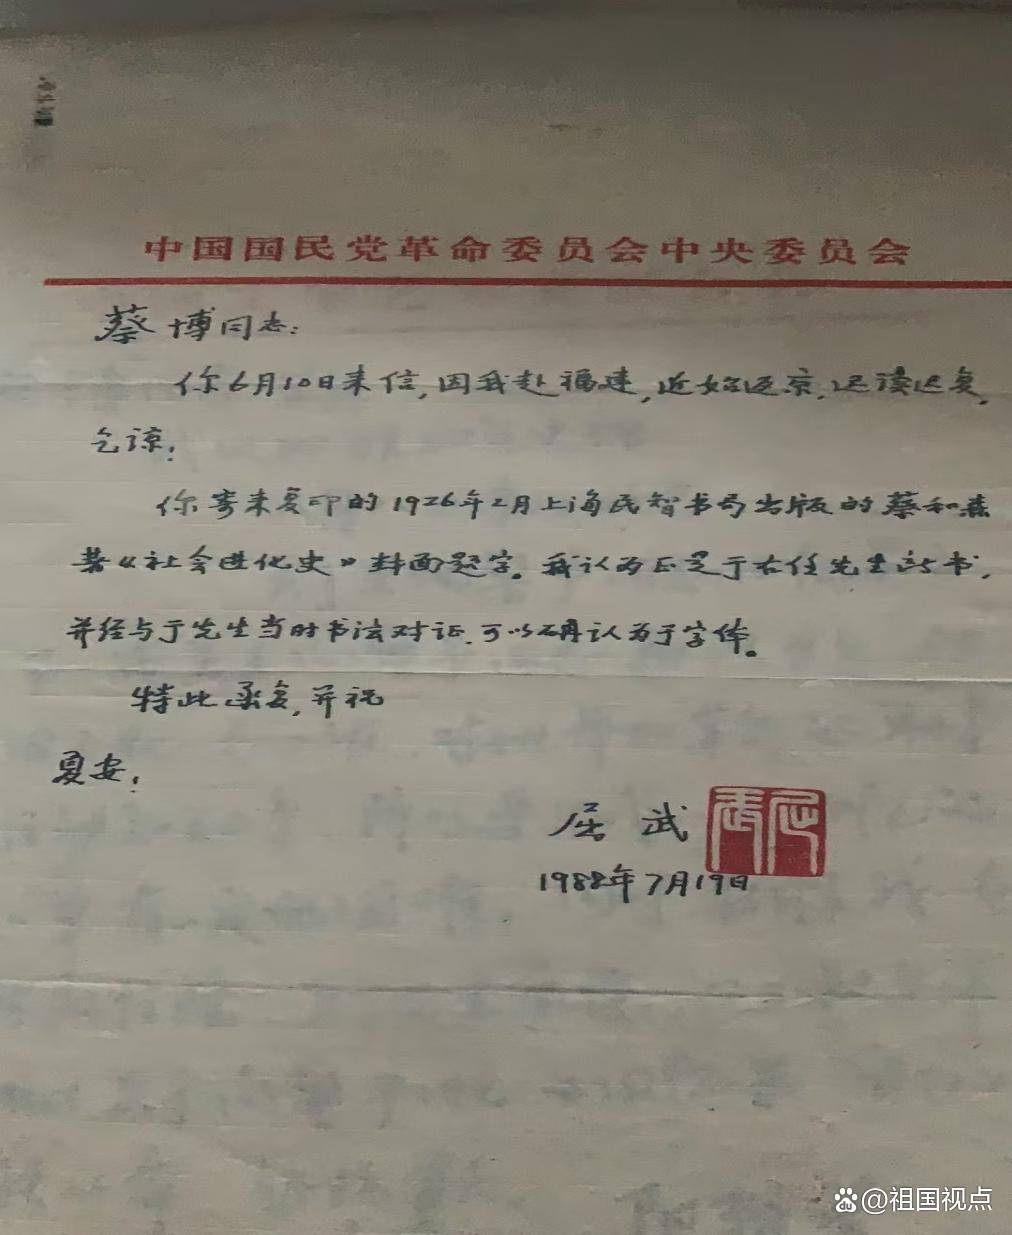 中国国民党革命委员会中央委员会
蔡博同志:
你6月10日来信,因我赴福建,近始返京,迟读迟复,
乞谅!
你寄来复印的1926年2月上海民智书局出版的蔡和森
著《社会进化史》封面题字。我认为正是于右任先生所书,
并经与于先生当时书法对证,可以确认为于字体。
特此函复,并祝
夏安!
屈武
屈武
1988年7月19日
@祖国视点